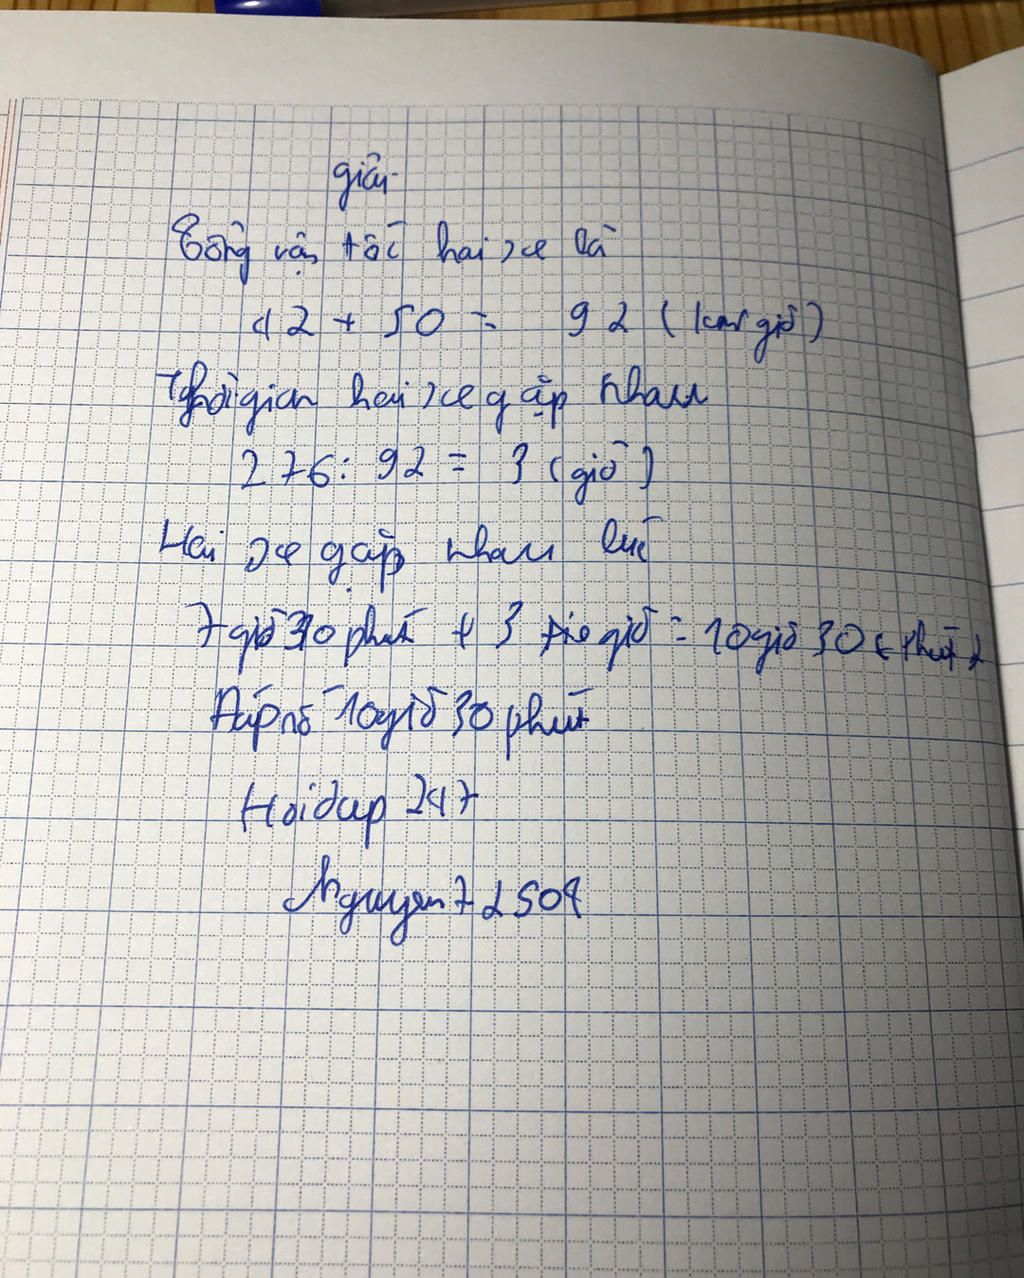 giải
Tổng vận tốc hai xe là
42 + 50 = 92 (km/giờ)
Thời gian hai xe gặp nhau
276 : 92 = 3 (giờ)
Hai xe gặp nhau lúc
7 giờ 30 phút + 3 giờ = 10 giờ 30 phút
Đáp số 10 giờ 30 phút
Hoidap 247
Nguyen